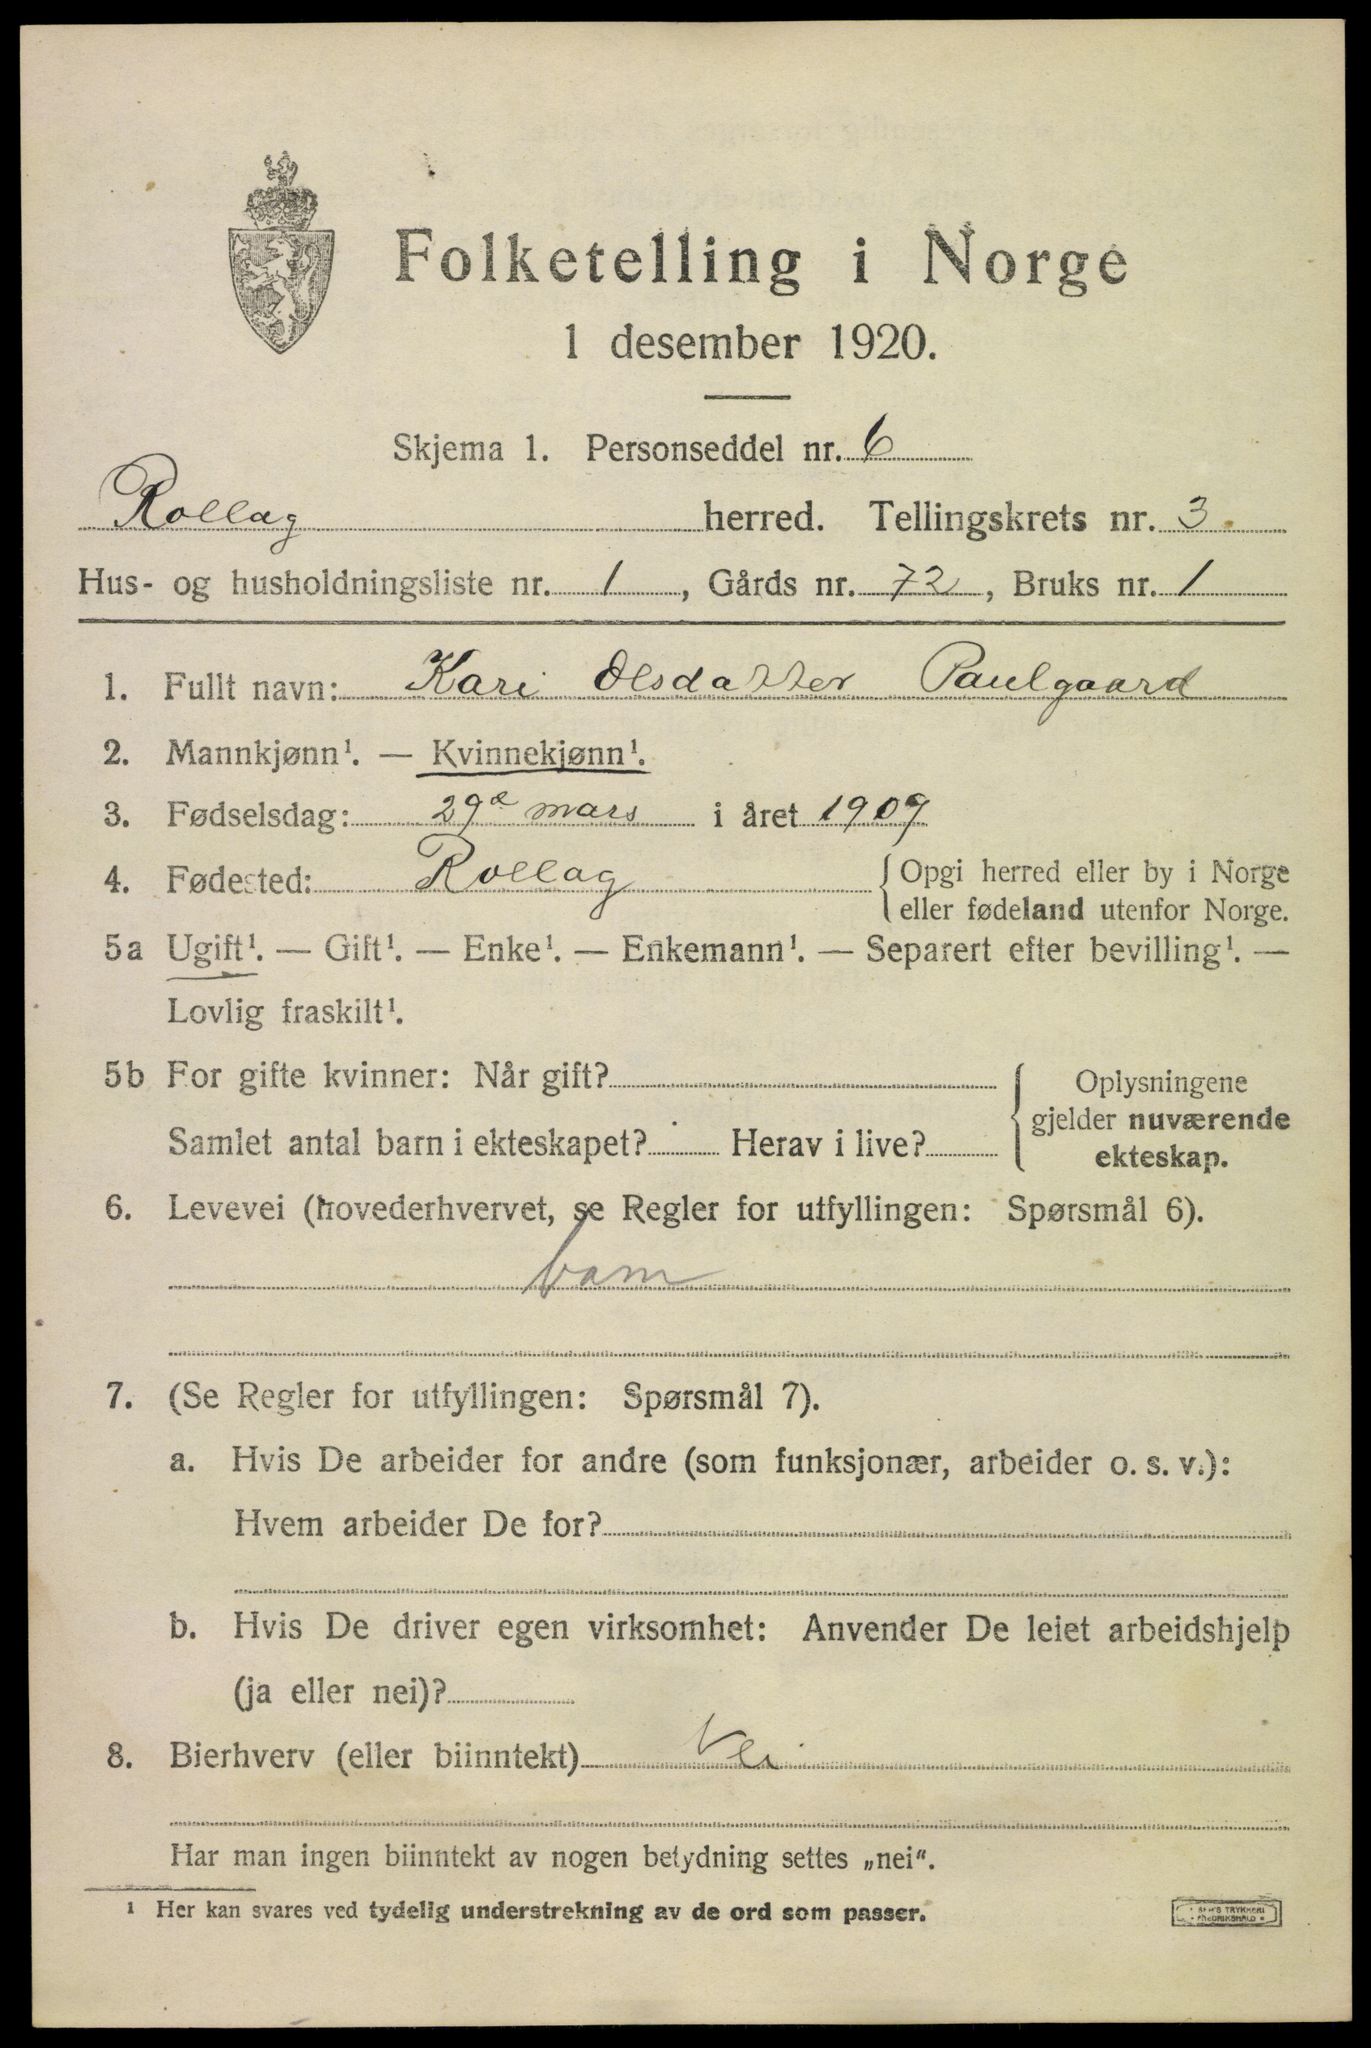 Folketelling i Norge
1 desember 1920.
Skjema 1. Personseddel nr. 6
Rollag herred. Tellingskrets nr. 3.
Hus- og husholdningsliste nr. 1, Gårds nr. 72, Bruks nr. 1
1. Fullt navn: Kari Olsdatter Paulgaard
2. Mannkjønn¹. — Kvinnekjønn¹.
3. Fødselsdag: 29de mars i året 1909
4. Fødested: Rollag { Opgi herred eller by i Norge
eller fødeland utenfor Norge.
5a Ugift¹. — Gift¹. — Enke¹. — Enkemann¹. — Separert efter bevilling¹. —
Lovlig fraskilt¹.
5b For gifte kvinner: Når gift? { Oplysningene
gjelder nuværende
Samlet antal barn i ekteskapet? Herav i live? ekteskap.
6. Levevei (hovederhvervet, se Regler for utfyllingen: Spørsmål 6).
barn
7. (Se Regler for utfyllingen: Spørsmål 7).
a. Hvis De arbeider for andre (som funksjonær, arbeider o. s. v.):
Hvem arbeider De for?
b. Hvis De driver egen virksomhet: Anvender De leiet arbeidshjelp
(ja eller nei)?
8. Bierhverv (eller biinntekt) Nei
Har man ingen biinntekt av nogen betydning settes „nei“.
¹ Her kan svares ved tydelig understrekning av de ord som passer.
TRYKKERI
FREDRIKSHALD